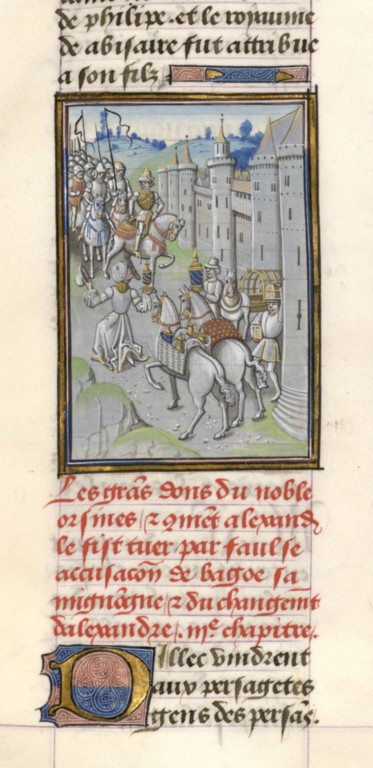 de philipe. et le royaume
de abisaire fut attribue
a son filz
Les grãs dons du noble
orsines / ⁊ ꝯmẽt alexand᷑
le fist tuer par faulse
accusacõn de bagoe sa
mignõgne / ⁊ du changemt
dalexandre /. iiie chapitre /.
Illec vindrent
aux persagetes
gens des persãs.